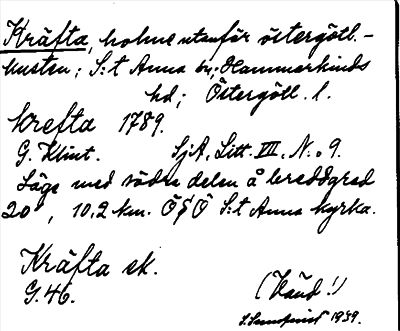 Kräfta, holme utanför östergötl.-
kusten; S:t Anna sn; Hammarkinds
hd; Östergötl. l.
Krefta 1789.
G. Klint. SjA, Litt. VIII, N:o 9.
Läge med södra delen å breddgrad
20', 10,2 km. Ö§Ö S:t Anna kyrka.
Kräfta sk.
G.46.
(Känd!)
S. Sundqvist 1939.